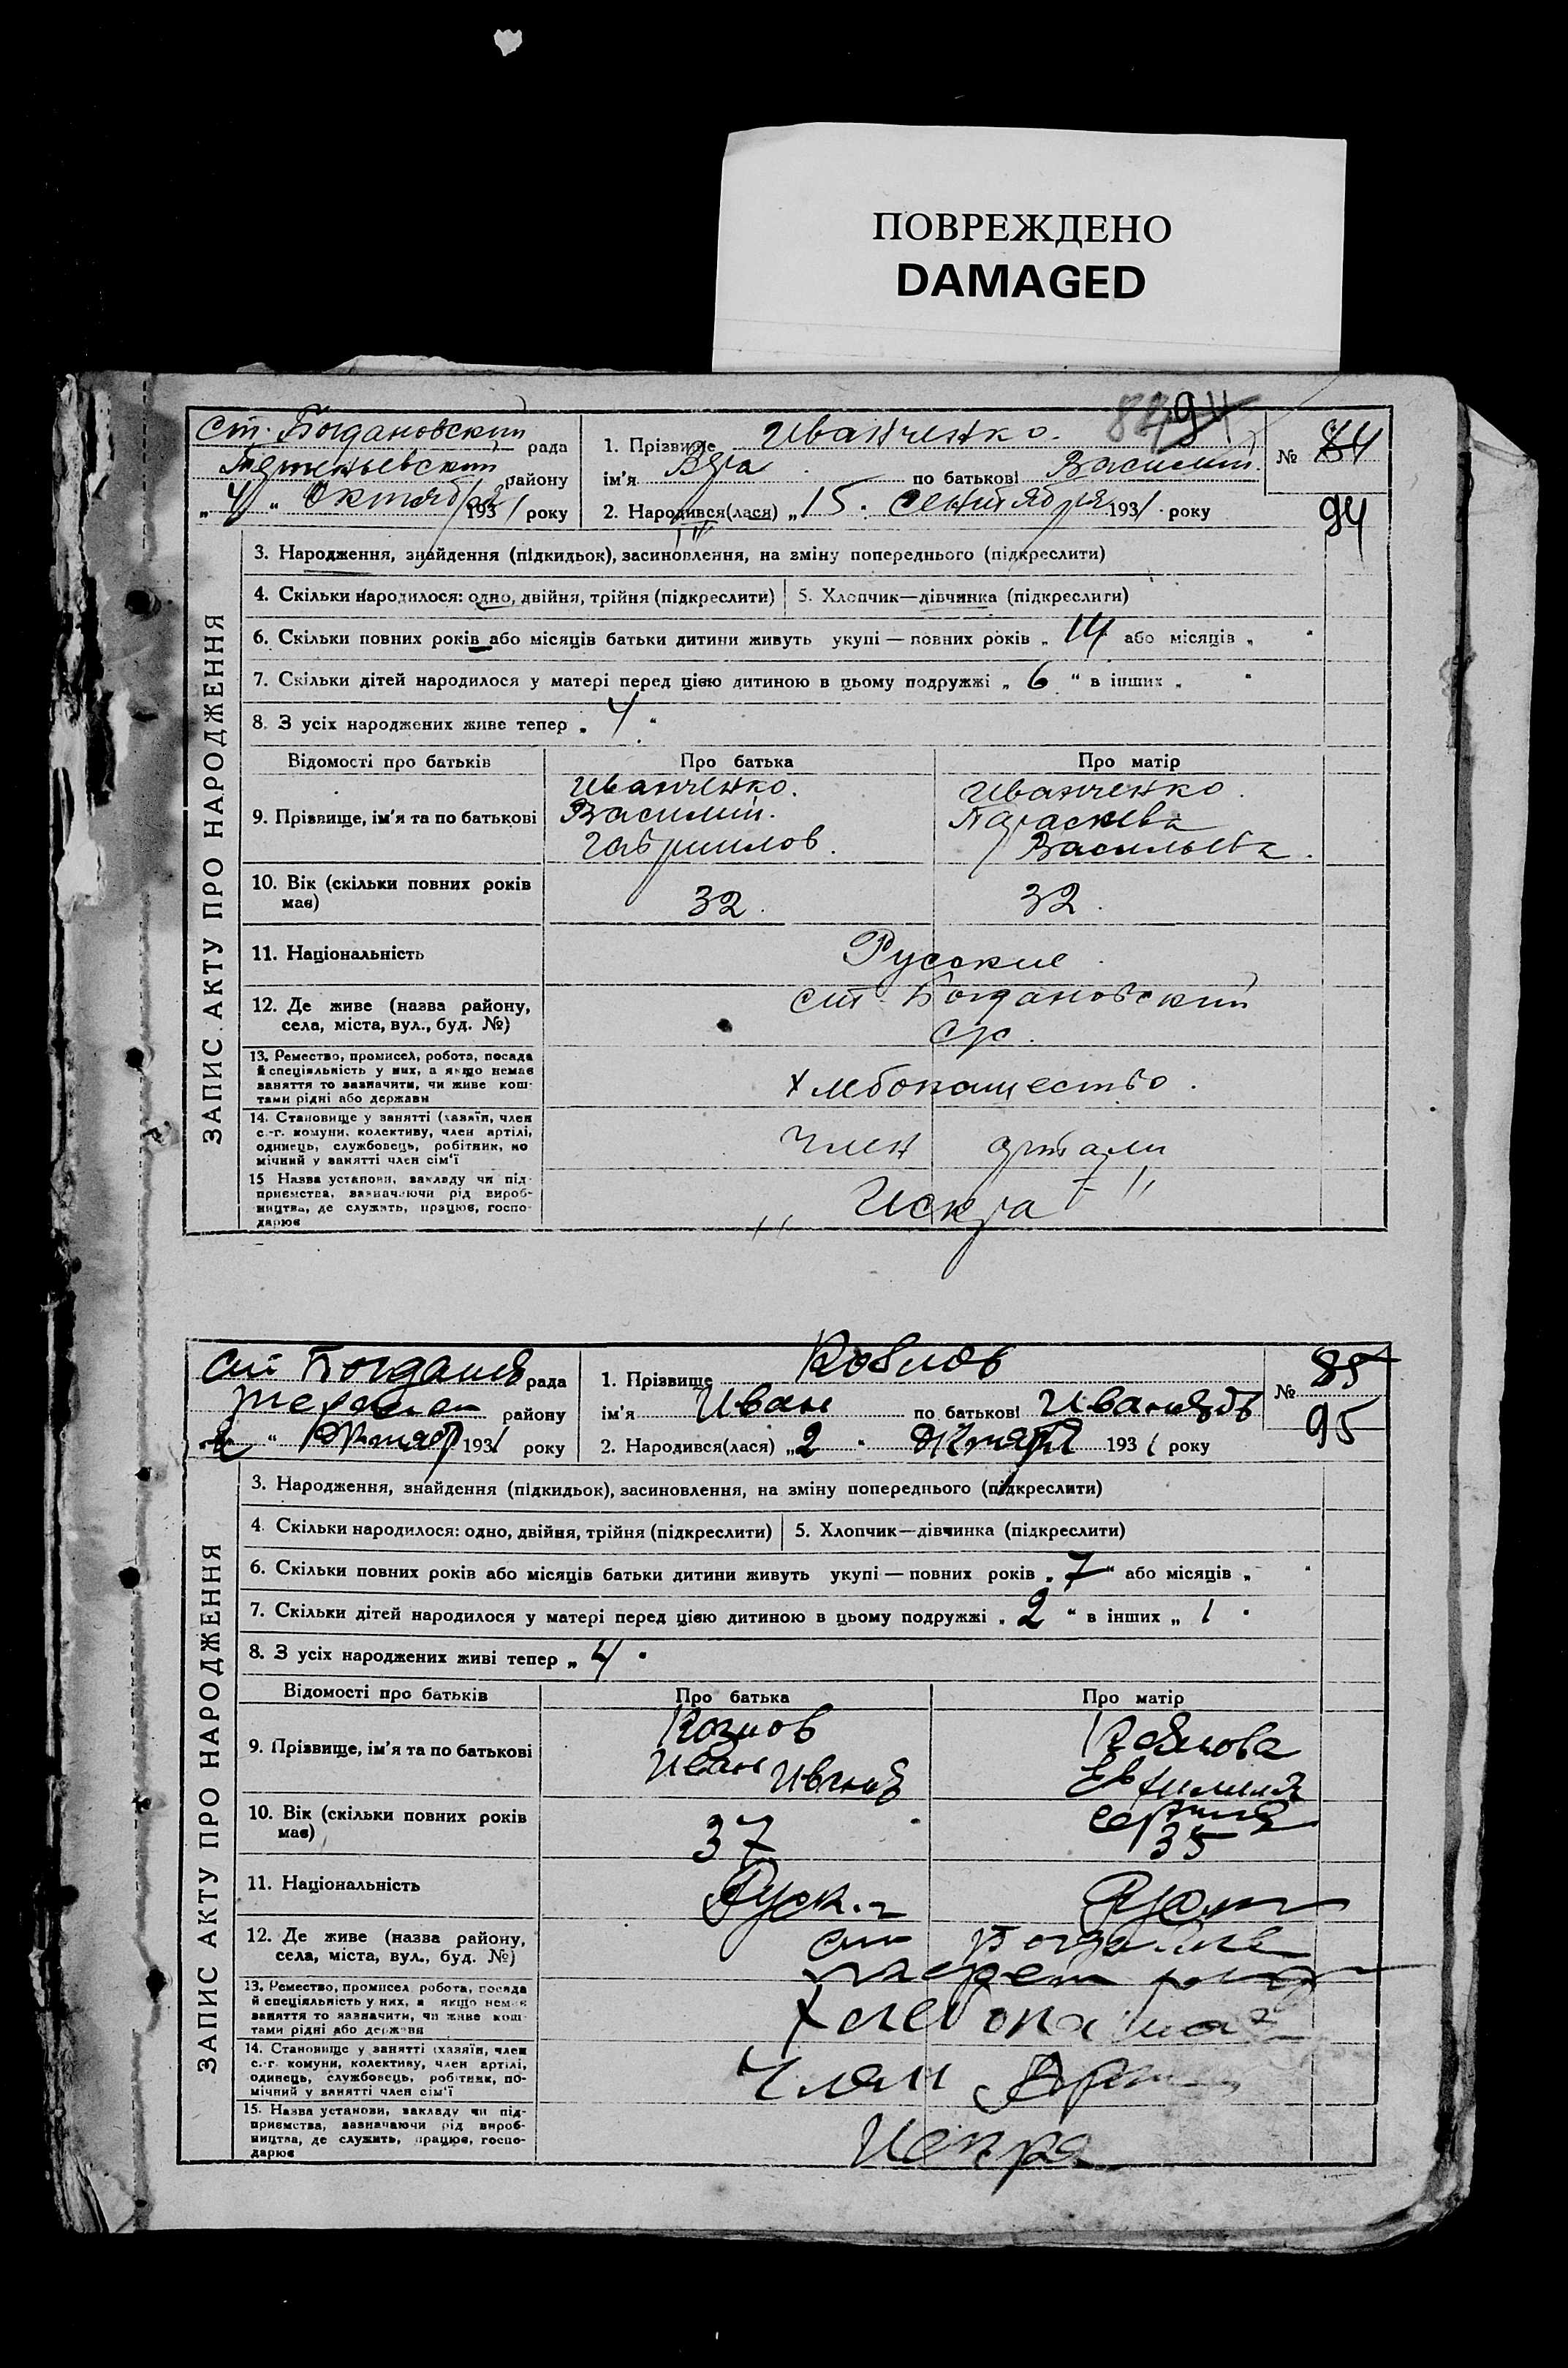 ПОВРЕЖДЕНО
DAMAGED
ЗАПИС АКТУ ПРО НАРОДЖЕННЯ
ст. Богдановский рада
району
„4“ Октября 1931 року
1. Прізвище Иванченко.
ім'я Вера по батькові Василий.
2. Народився(лася) „15. сентября 1931 року
94
№ 84
94
3. Народження, знайдення (підкидьок), засиновлення, на зміну попереднього (підкреслити)
4. Скільки народилося: одно, двійня, трійня (підкреслити) 5. Хлопчик—дівчинка (підкреслити)
6. Скільки повних років або місяців батьки дитини живуть укупі — повних років „ 14 або місяців „
7. Скільки дітей народилося у матері перед цією дитиною в цьому подружжі „ 6 “ в інших „
8. З усіх народжених живе тепер „ 4 “
Відомості про батьків Про батька Про матір
9. Прізвище, ім'я та по батькові
Иванченко. Василий. Гаврилов.
Иванченко. Параскева Васильева.
10. Вік (скільки повних років має) 32. 32.
11. Національність Русские
12. Де живе (назва району, села, міста, вул., буд. №)
ст. Богдановский
с/с.
13. Ремество, промисел, робота, посада
й спеціяльність у них, а якщо немає
заняття то зазначити, чи живе кош-
тами рідні або держави
Хлебопашество.
14. Становище у занятті (хазяїн, член
с.-г. комуни, колективу, член артілі,
одинець, службовець, робітник, по
мічний у занятті член сім'ї
член артели
15 Назва установи, закладу чи під-
приємства, зазначаючи рід вироб-
ництва, де служить, працює, госпо-
дарює
„ Искра “
ЗАПИС АКТУ ПРО НАРОДЖЕННЯ
ст Богданов рада
району
“ Октяб 1931 року
1. Прізвище
ім'я Иван по батькові Иванов
2. Народився(лася) „2 “ Октября 1931 року
№ 85
95
3. Народження, знайдення (підкидьок), засиновлення, на зміну попереднього (підкреслити)
4. Скільки народилося: одно, двійня, трійня (підкреслити) 5. Хлопчик—дівчинка (підкреслити)
6. Скільки повних років або місяців батьки дитини живуть укупі — повних років „ 7 “ або місяців „
7. Скільки дітей народилося у матері перед цією дитиною в цьому подружжі „ 2 “ в інших „ 1
8. З усіх народжених живі тепер „ 4
Відомості про батьків Про батька Про матір
9. Прізвище, ім'я та по батькові
Иван
10. Вік (скільки повних років має) 37 35
11. Національність Руск.
12. Де живе (назва району, села, міста, вул., буд. №)
ст
13. Ремество, промисел робота, посада
й спеціяльність у них, а якщо немає
заняття то зазначити, чи живе кош
тами рідні або держави
14. Становище у занятті (хазяїн, член
с.-г. комуни, колективу, член артілі,
одинець, службовець, робітник, по-
мічний у занятті член сім'ї
Член Арт
15. Назва установи, закладу чи під-
приємства, зазначаючи рід вироб-
ництва, де служить, працює, госпо-
дарює
Искра